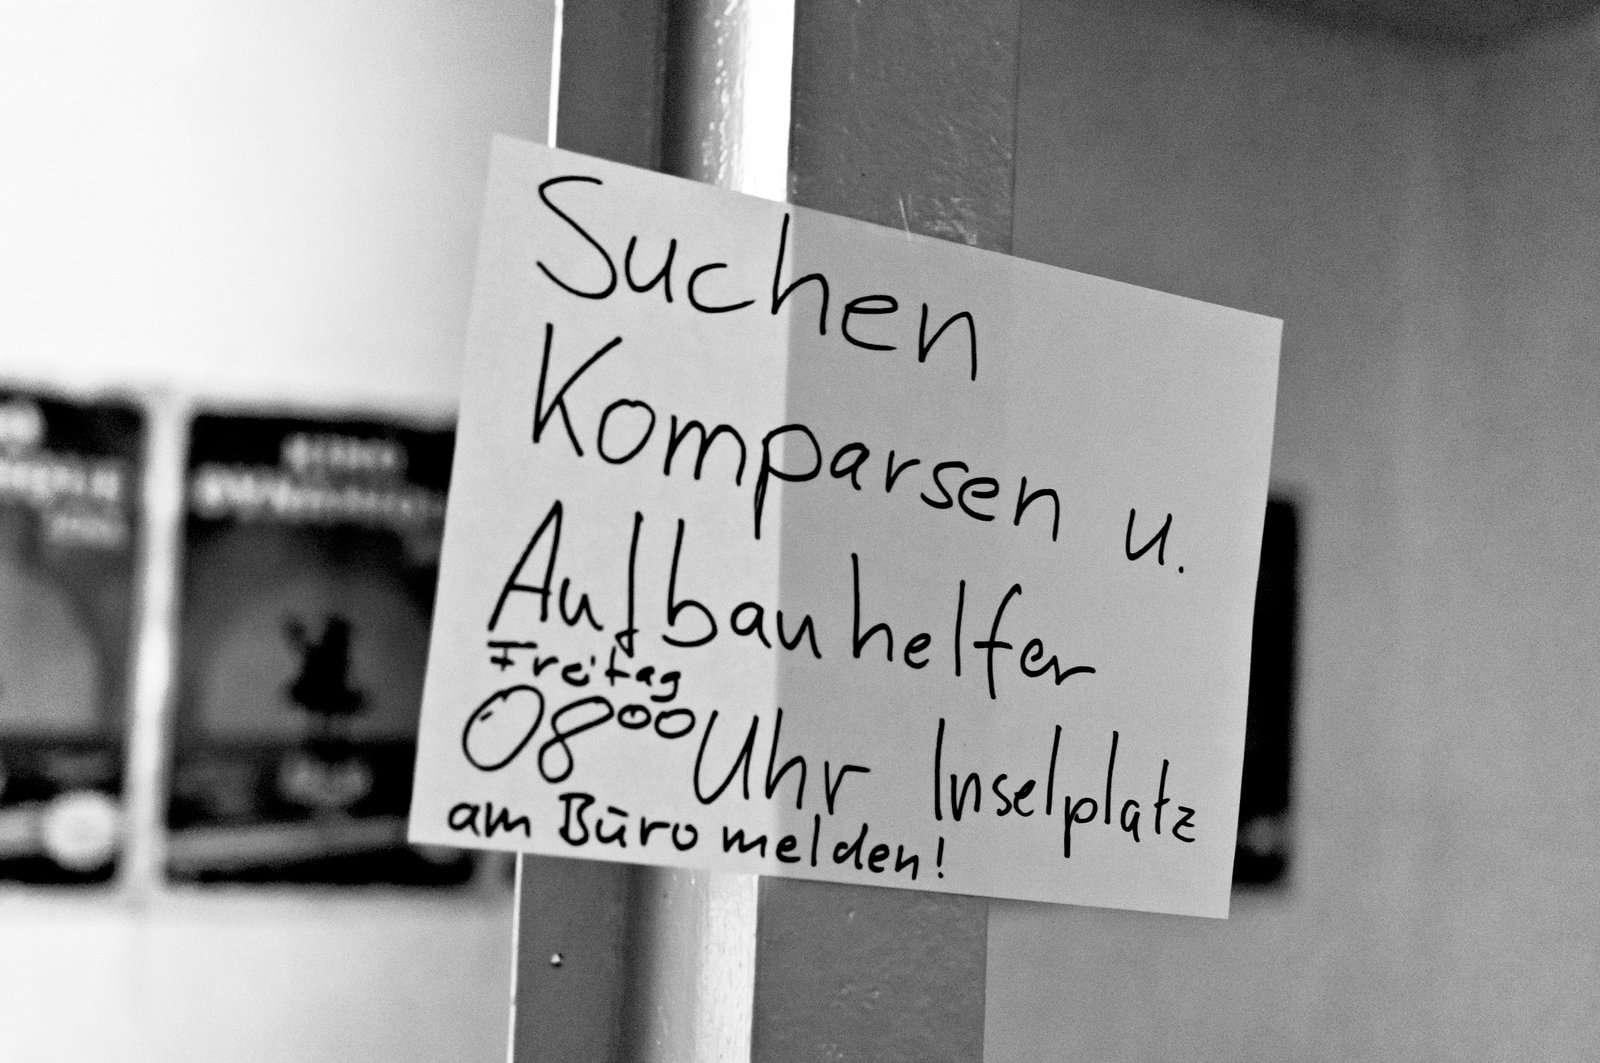 Suchen
Komparsen u.
Aufbauhelfer
Freitag
08⁰⁰ Uhr Inselplatz
am Büro melden!